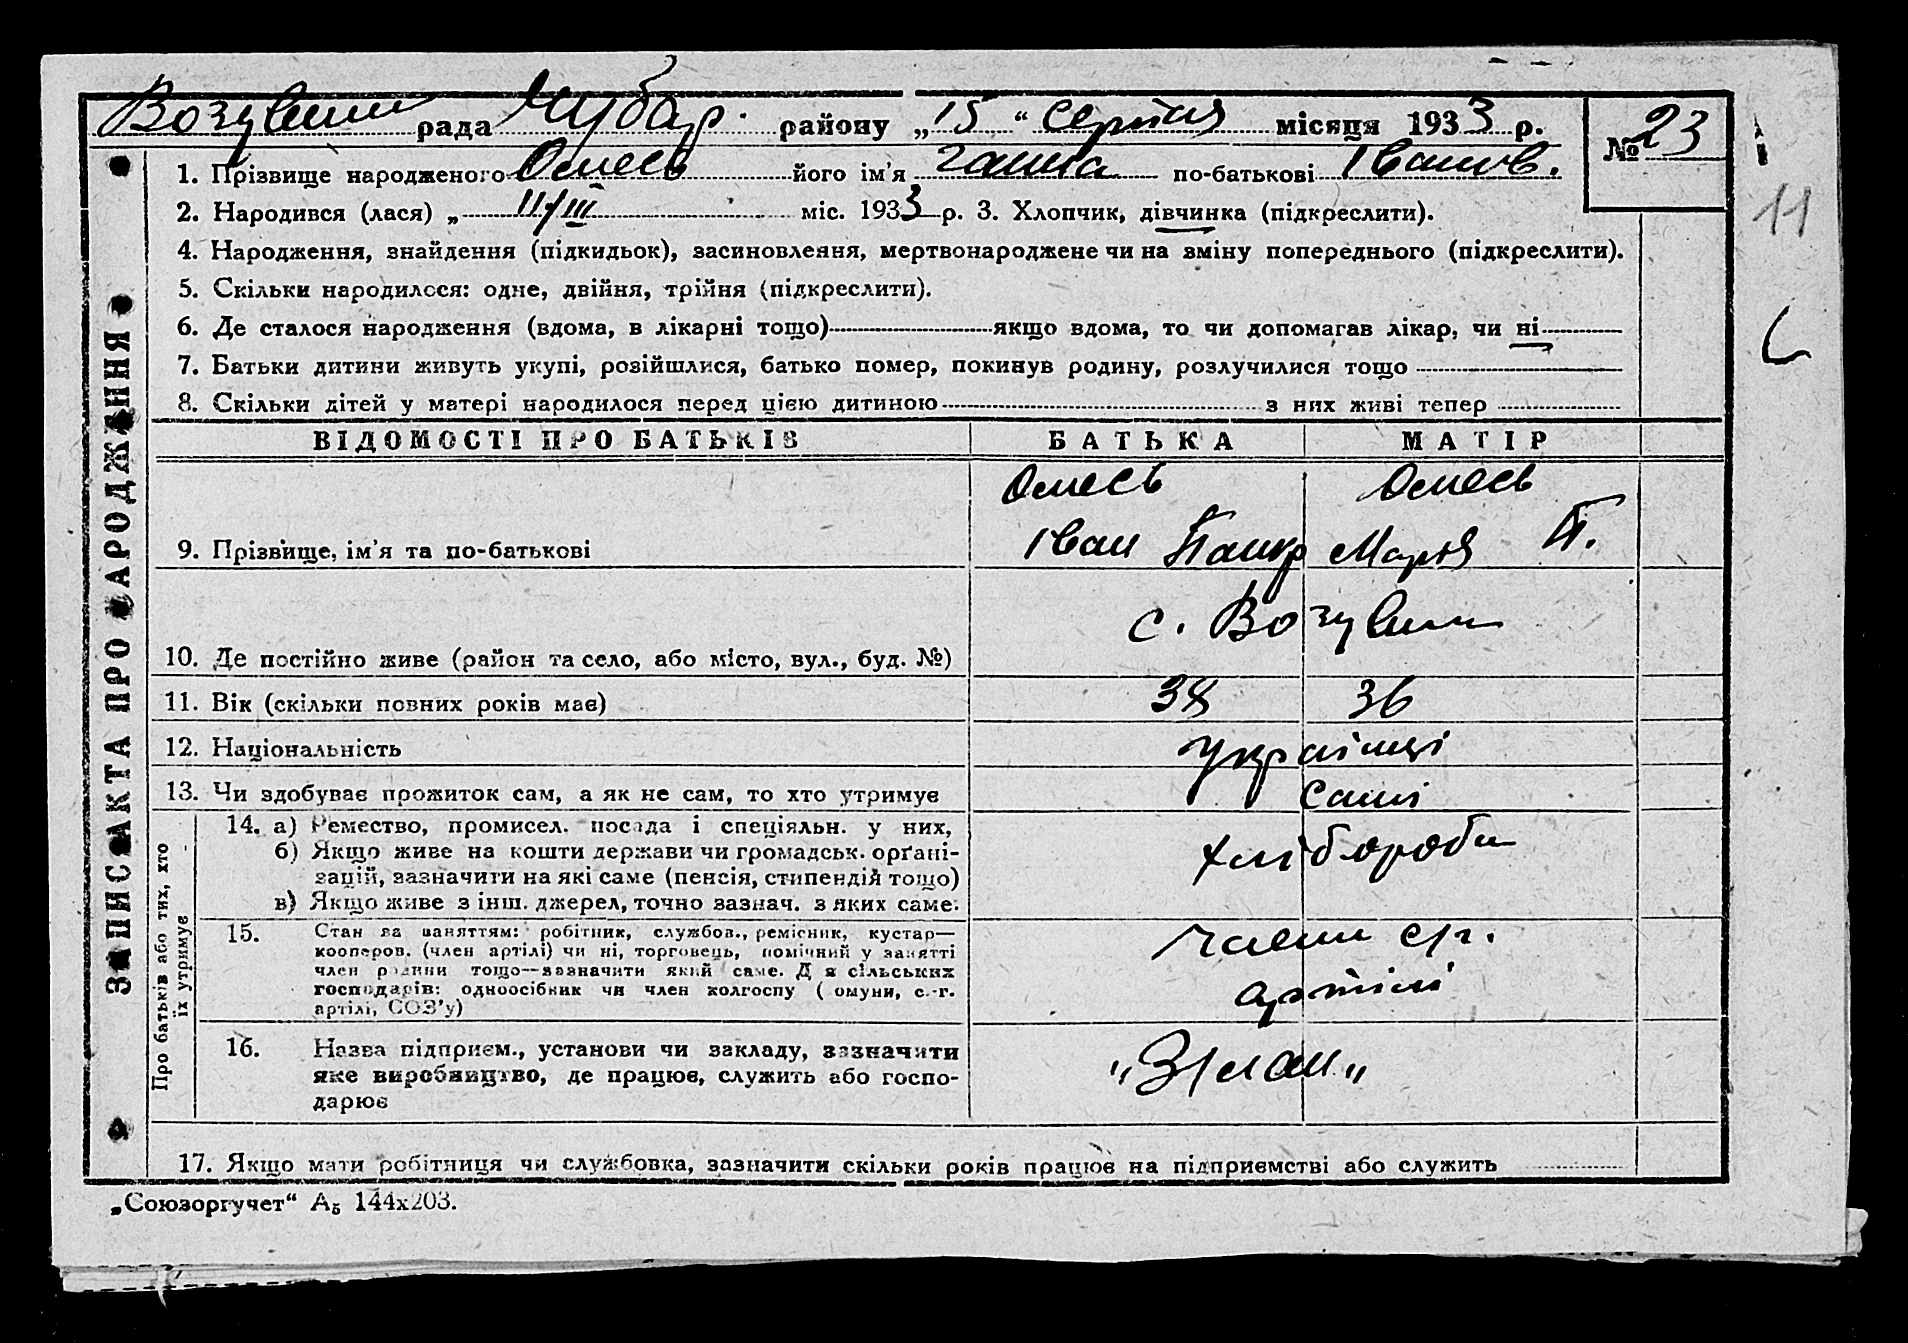 Возувани рада Чубар. району „15“ серпня місяця 1933 р.
№ 23
1. Прізвище народженого Олесь його ім'я Ганна по-батькові Іванов.
2. Народився (лася) „ 11/III міс. 1933 р. 3. Хлопчик, дівчинка (підкреслити).
11
4. Народження, знайдення (підкидьок), засиновлення, мертвонароджене чи на зміну попереднього (підкреслити).
5. Скільки народилося: одне, двійня, трійня (підкреслити).
6. Де сталося народження (вдома, в лікарні тощо) якщо вдома, то чи допомагав лікар, чи ні
7. Батьки дитини живуть укупі, розійшлися, батько помер, покинув родину, розлучилися тощо
8. Скільки дітей у матері народилося перед цією дитиною з них живі тепер
ЗАПИС АКТА ПРО НАРОДЖЕННЯ
ВІДОМОСТІ ПРО БАТЬКІВ БАТЬКА МАТІР
Олесь Олесь
9. Прізвище, ім'я та по-батькові Іван Панкр Марія П.
с. Возувани
10. Де постійно живе (район та село, або місто, вул., буд. №)
11. Вік (скільки повних років має) 38 36
12. Національність українці
13. Чи здобуває прожиток сам, а як не сам, то хто утримує самі
Про батьків або тих, хто їх утримує
14. а) Ремество, промисел. посада і спеціяльн. у них,
б) Якщо живе на кошти держави чи громадськ. органі-
зацій, зазначити на які саме (пенсія, стипендій тощо)
в) Якщо живе з інш. джерел, точно зазнач. з яких саме:
хлібороби
15. Стан за заняттям: робітник, службов., ремісник, кустар—
кооперов. (член артілі) чи ні, торговець, помічний у занятті
член родини тощо—зазначити який саме. Для сільських
господарів: одноосібник чи член колгоспу (комуни, с.-г.
артілі, СОЗ'у)
члени с/г.
артілі
16. Назва підприєм., установи чи закладу, зазначити
яке виробництво, де працює, служить або госпо-
дарює
17. Якщо мати робітниця чи службовка, зазначити скільки років працює на підприємстві або служить
„Союзоргучет“ А5 144х203.